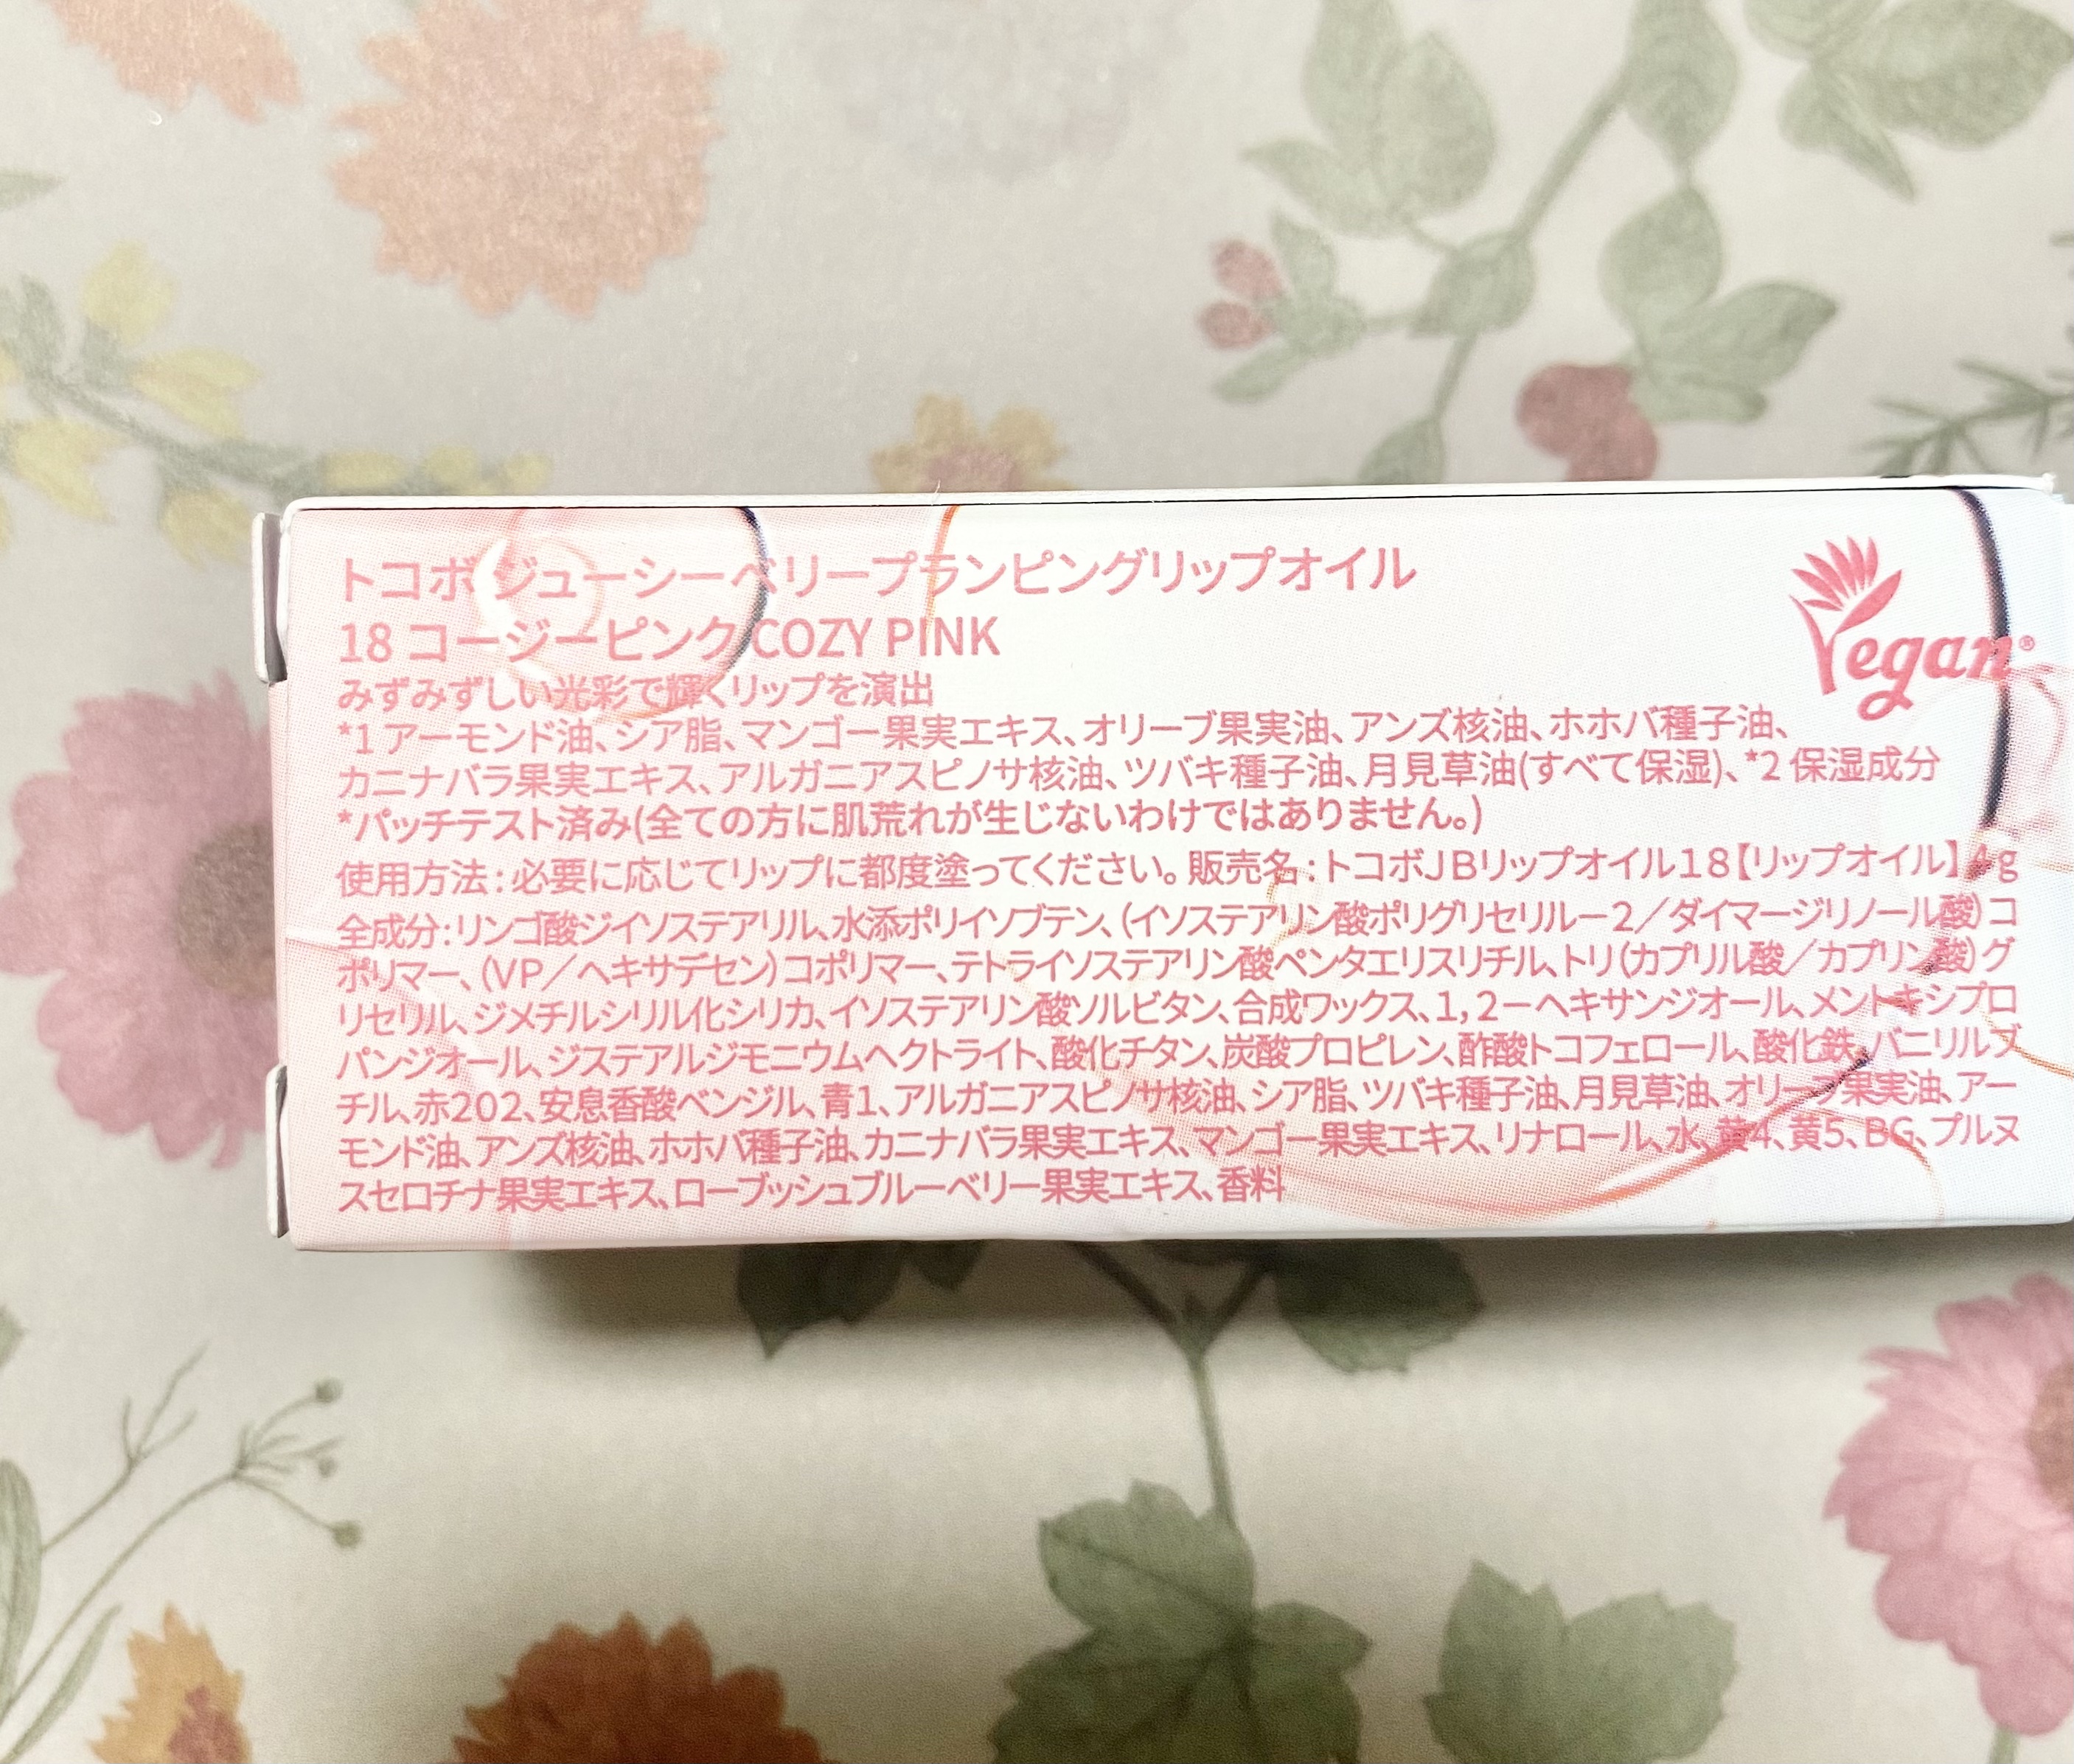 トコボ ジューシーベリープランピングリップオイル
18 コージーピンク COZY PINK
Vegan®
みずみずしい光彩で輝くリップを演出
*1 アーモンド油、シア脂、マンゴー果実エキス、オリーブ果実油、アンズ核油、ホホバ種子油、
カニナバラ果実エキス、アルガニアスピノサ核油、ツバキ種子油、月見草油(すべて保湿)、*2 保湿成分
*パッチテスト済み(全ての方に肌荒れが生じないわけではありません。)
使用方法：必要に応じてリップに都度塗ってください。販売名：トコボJBリップオイル18【リップオイル】4g
全成分：リンゴ酸ジイソステアリル、水添ポリイソブテン、(イソステアリン酸ポリグリセリル－2／ダイマージリノール酸)コ
ポリマー、(VP／ヘキサデセン)コポリマー、テトライソステアリン酸ペンタエリスリチル、トリ(カプリル酸／カプリン酸)グ
リセリル、ジメチルシリル化シリカ、イソステアリン酸ソルビタン、合成ワックス、1,2－ヘキサンジオール、メントキシプロ
パンジオール、ジステアルジモニウムヘクトライト、酸化チタン、炭酸プロピレン、酢酸トコフェロール、酸化鉄、バニリルブ
チル、赤202、安息香酸ベンジル、青1、アルガニアスピノサ核油、シア脂、ツバキ種子油、月見草油、オリーブ果実油、アー
モンド油、アンズ核油、ホホバ種子油、カニナバラ果実エキス、マンゴー果実エキス、リナロール、水、黄4、黄5、BG、プルヌ
スセロチナ果実エキス、ローブッシュブルーベリー果実エキス、香料